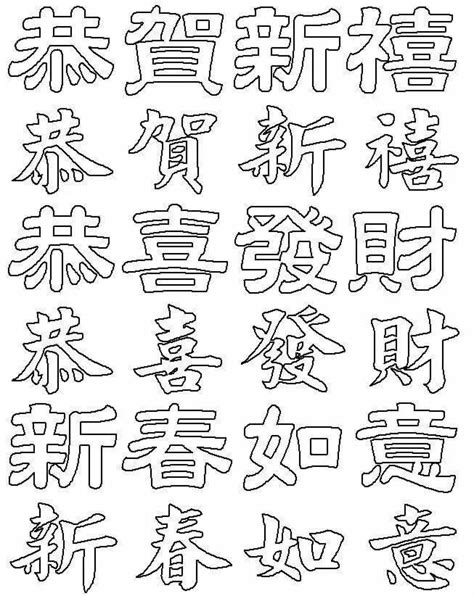 恭賀新禧
恭賀新禧
恭喜發財
恭喜發財
新春如意
新春如意